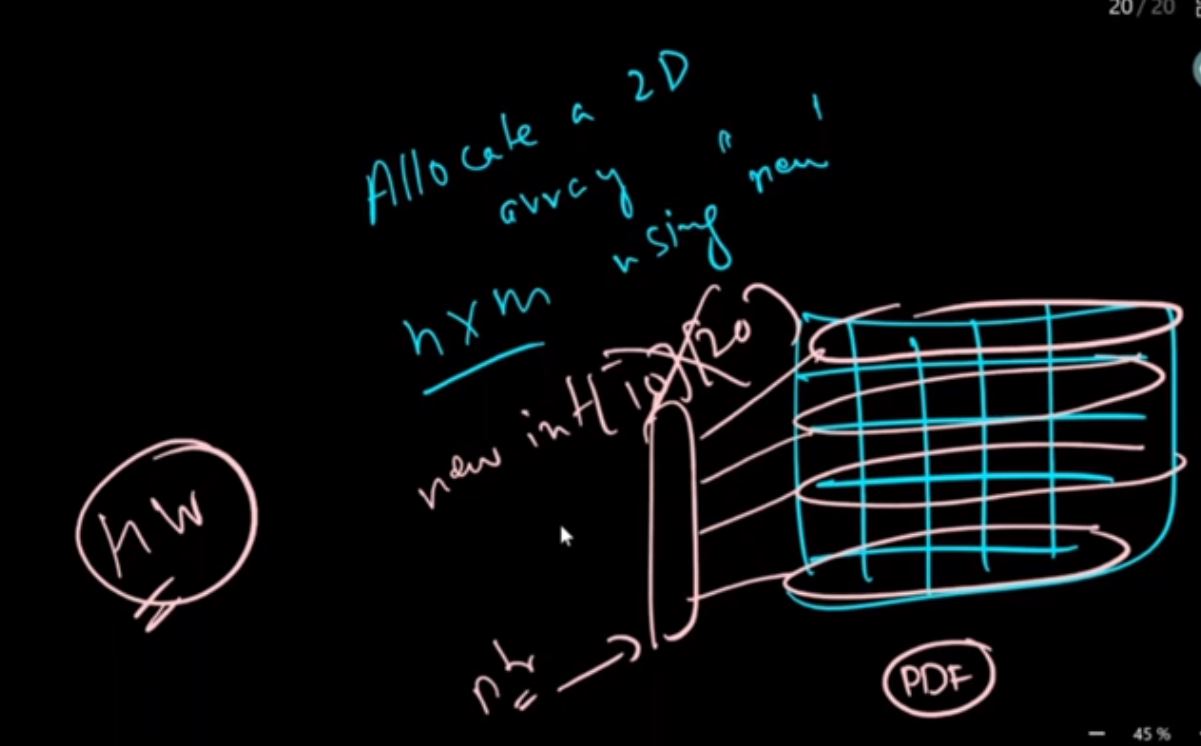 20/20
Allocate a 2D
array using "new"
nxm
new int[10][20]
HW
PDF
45 %